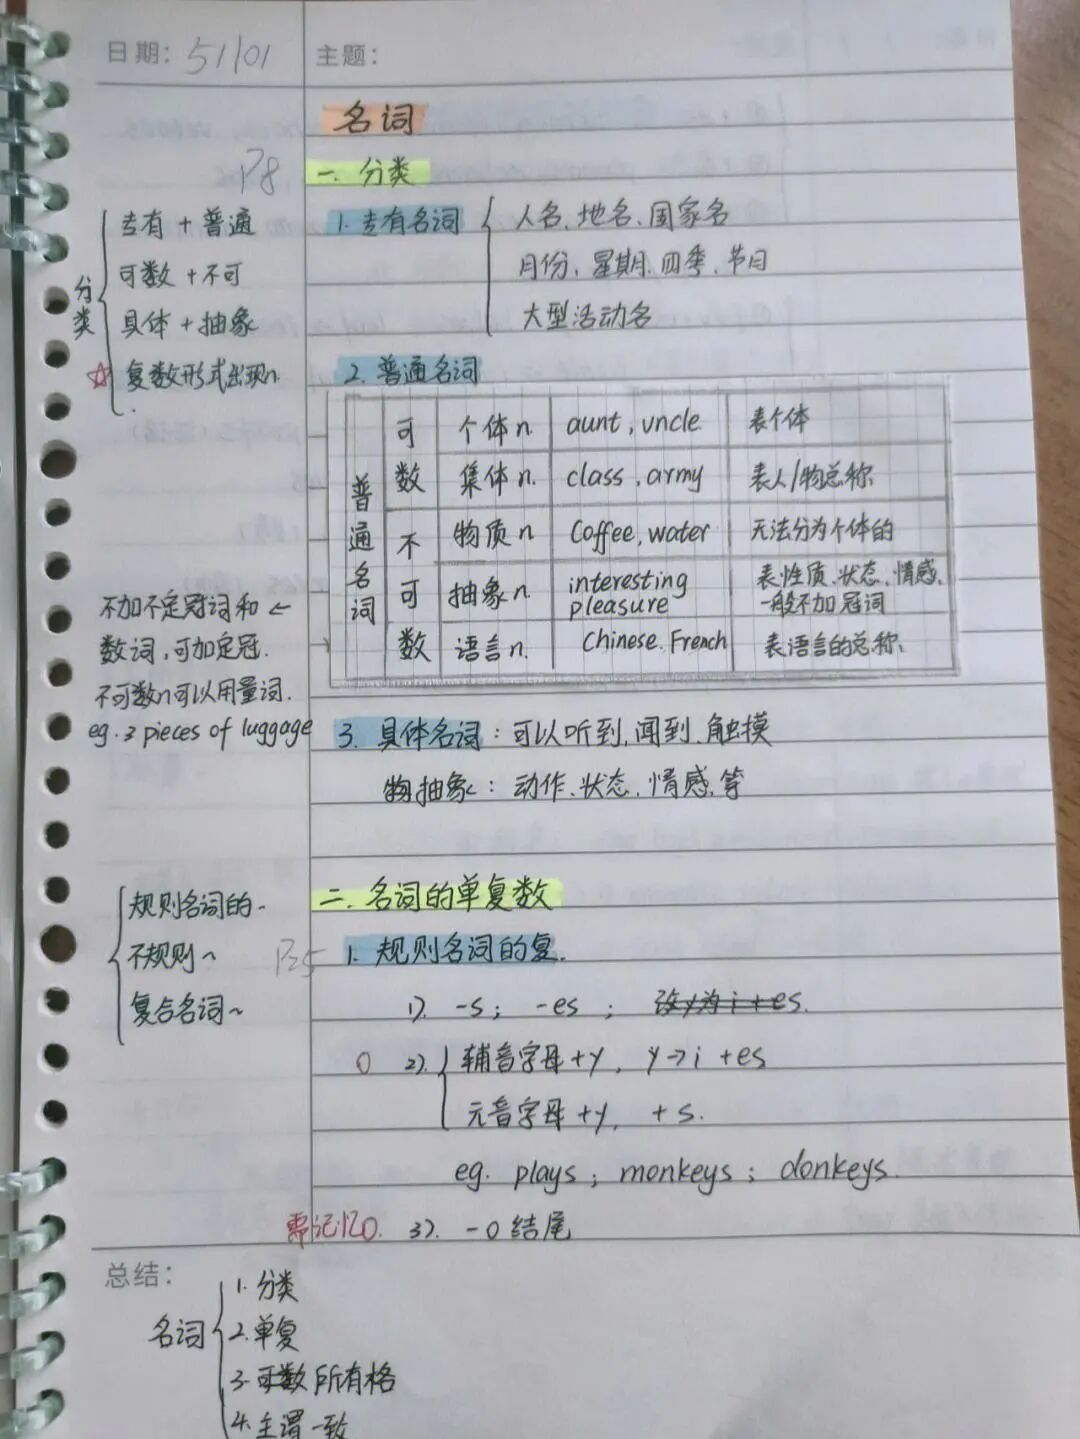 日期: 51101
主题:
名词
P8
一. 分类
专有 + 普通
可数 + 不可
具体 + 抽象
☆ 复数形式出现n.
分类
1. 专有名词
人名、地名、国家名
月份、星期、四季、节日
大型活动名
2. 普通名词
普通名词
可数
个体n. aunt, uncle 表个体
集体n. class, army 表人/物总称
不可数
物质n Coffee, water 无法分为个体的
抽象n. interesting pleasure 表性质、状态、情感、一般不加冠词
语言n. Chinese. French 表语言的总称
不加不定冠词和 ←
数词,可加定冠.
不可数n可以用量词.
eg. 3 pieces of luggage
3. 具体名词: 可以听到,闻到、触摸
抽象: 动作、状态、情感、等
规则名词的~
不规则~
复合名词~
二. 名词的单复数
P25
1. 规则名词的复.
1). -s; -es ; 改y为i+es.
0 2). 辅音字母+y, y→i +es
元音字母+y, +s.
eg. plays; monkeys; donkeys.
需记忆0. 3). -o结尾
总结:
名词
1. 分类
2. 单复
3. 可数 所有格
4. 主谓一致